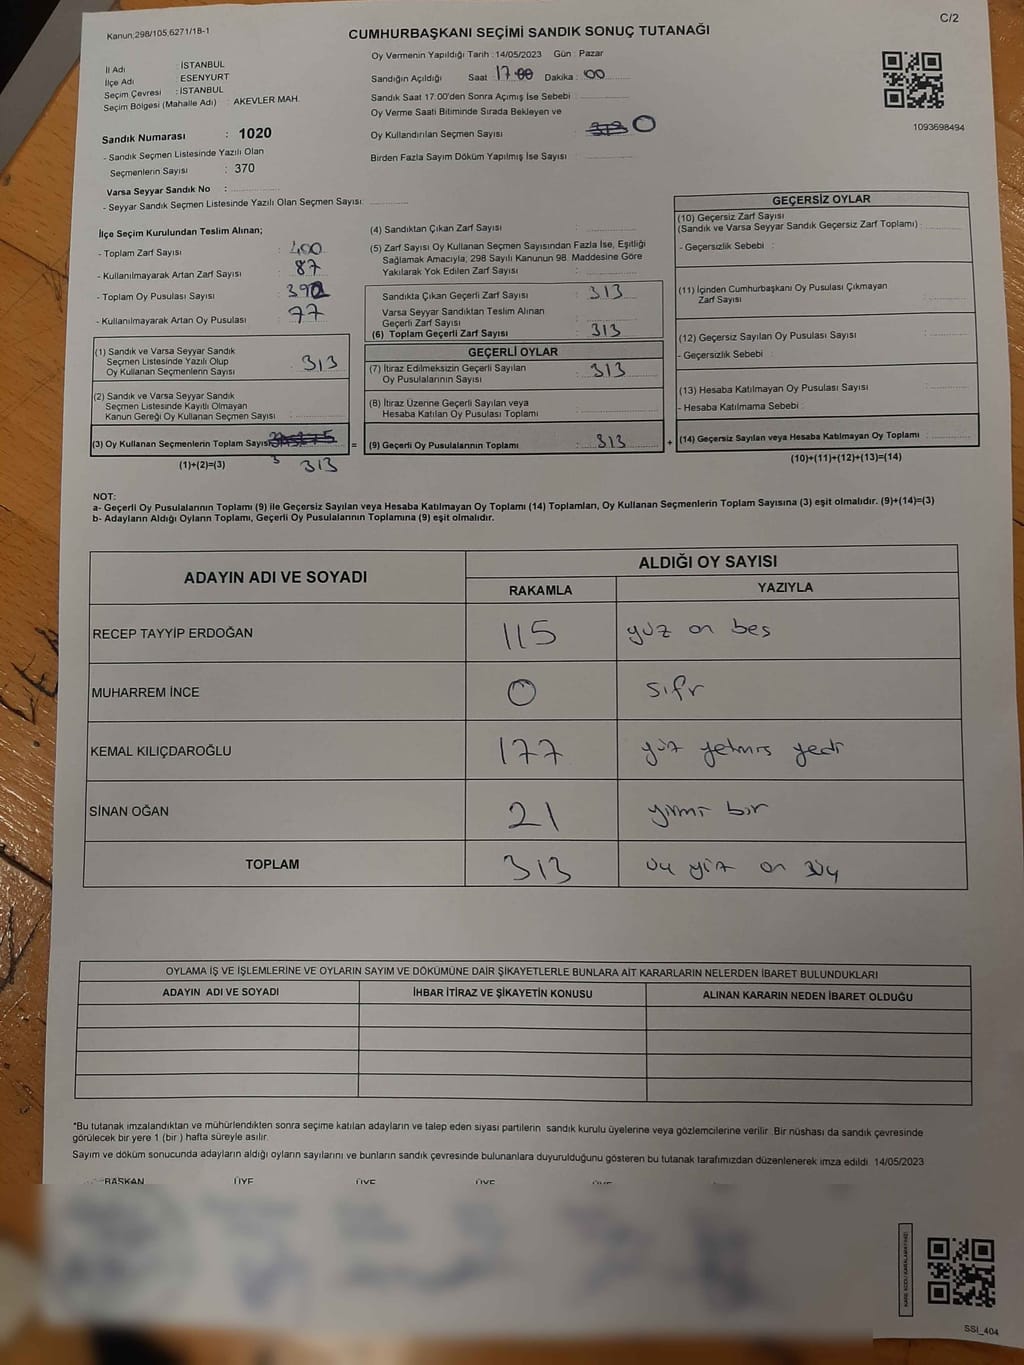 C/2
Kanun;298/105,6271/18-1
CUMHURBAŞKANI SEÇİMİ SANDIK SONUÇ TUTANAĞI
İl Adı : İSTANBUL
İlçe Adı : ESENYURT
Seçim Çevresi : İSTANBUL
Seçim Bölgesi (Mahalle Adı) : AKEVLER MAH.
Sandık Numarası : 1020
- Sandık Seçmen Listesinde Yazılı Olan
Seçmenlerin Sayısı : 370
Varsa Seyyar Sandık No :
- Seyyar Sandık Seçmen Listesinde Yazılı Olan Seçmen Sayısı:
Oy Vermenin Yapıldığı Tarih : 14/05/2023 Gün : Pazar
Sandığın Açıldığı Saat : 17:00 Dakika : 00
Sandık Saat 17:00'den Sonra Açımış İse Sebebi :
Oy Verme Saati Bitiminde Sırada Bekleyen ve
Oy Kullandırılan Seçmen Sayısı : 313 0
Birden Fazla Sayım Döküm Yapılmış İse Sayısı :
1093698494
İlçe Seçim Kurulundan Teslim Alınan;
- Toplam Zarf Sayısı : 400
- Kullanılmayarak Artan Zarf Sayısı : 87
- Toplam Oy Pusulası Sayısı : 390
- Kullanılmayarak Artan Oy Pusulası : 77
(1) Sandık ve Varsa Seyyar Sandık
Seçmen Listesinde Yazılı Olup
Oy Kullanan Seçmenlerin Sayısı : 313
(2) Sandık ve Varsa Seyyar Sandık
Seçmen Listesinde Kayıtlı Olmayan
Kanun Gereği Oy Kullanan Seçmen Sayısı :
(3) Oy Kullanan Seçmenlerin Toplam Sayısı
=
(1)+(2)=(3) 3 313
(4) Sandıktan Çıkan Zarf Sayısı :
(5) Zarf Sayısı Oy Kullanan Seçmen Sayısından Fazla İse, Eşitliği
Sağlamak Amacıyla; 298 Sayılı Kanunun 98. Maddesine Göre
Yakılarak Yok Edilen Zarf Sayısı :
Sandıkta Çıkan Geçerli Zarf Sayısı : 313
Varsa Seyyar Sandıktan Teslim Alınan
Geçerli Zarf Sayısı :
(6) Toplam Geçerli Zarf Sayısı : 313
GEÇERLİ OYLAR
(7) İtiraz Edilmeksizin Geçerli Sayılan
Oy Pusulalarının Sayısı : 313
(8) İtiraz Üzerine Geçerli Sayılan veya
Hesaba Katılan Oy Pusulası Toplamı :
(9) Geçerli Oy Pusulalarının Toplamı : 313
+
GEÇERSİZ OYLAR
(10) Geçersiz Zarf Sayısı
(Sandık ve Varsa Seyyar Sandık Geçersiz Zarf Toplamı) :
- Geçersizlik Sebebi :
(11) İçinden Cumhurbaşkanı Oy Pusulası Çıkmayan
Zarf Sayısı :
(12) Geçersiz Sayılan Oy Pusulası Sayısı :
- Geçersizlik Sebebi :
(13) Hesaba Katılmayan Oy Pusulası Sayısı :
- Hesaba Katılmama Sebebi :
(14) Geçersiz Sayılan veya Hesaba Katılmayan Oy Toplamı :
(10)+(11)+(12)+(13)=(14)
NOT:
a- Geçerli Oy Pusulalarının Toplamı (9) ile Geçersiz Sayılan veya Hesaba Katılmayan Oy Toplamı (14) Toplamları, Oy Kullanan Seçmenlerin Toplam Sayısına (3) eşit olmalıdır. (9)+(14)=(3)
b- Adayların Aldığı Oyların Toplamı, Geçerli Oy Pusulalarının Toplamına (9) eşit olmalıdır.
ADAYIN ADI VE SOYADI
ALDIĞI OY SAYISI
RAKAMLA YAZIYLA
RECEP TAYYİP ERDOĞAN 115 yüz on beş
MUHARREM İNCE 0 sıfr
KEMAL KILIÇDAROĞLU 177 yüz yetmiş yedi
SİNAN OĞAN 21 yirmi bir
TOPLAM 313 üç yüz on üç
OYLAMA İŞ VE İŞLEMLERİNE VE OYLARIN SAYIM VE DÖKÜMÜNE DAİR ŞİKAYETLERLE BUNLARA AİT KARARLARIN NELERDEN İBARET BULUNDUKLARI
ADAYIN ADI VE SOYADI İHBAR İTİRAZ VE ŞİKAYETİN KONUSU ALINAN KARARIN NEDEN İBARET OLDUĞU
*Bu tutanak imzalandıktan ve mühürlendikten sonra seçime katılan adayların ve talep eden siyasi partilerin sandık kurulu üyelerine veya gözlemcilerine verilir. Bir nüshası da sandık çevresinde
görülecek bir yere 1 (bir ) hafta süreyle asılır.
Sayım ve döküm sonucunda adayların aldığı oyların sayılarını ve bunların sandık çevresinde bulunanlara duyurulduğunu gösteren bu tutanak tarafımızdan düzenlenerek imza edildi 14/05/2023
BAŞKAN ÜYE ÜYE ÜYE ÜYE
SSI_404